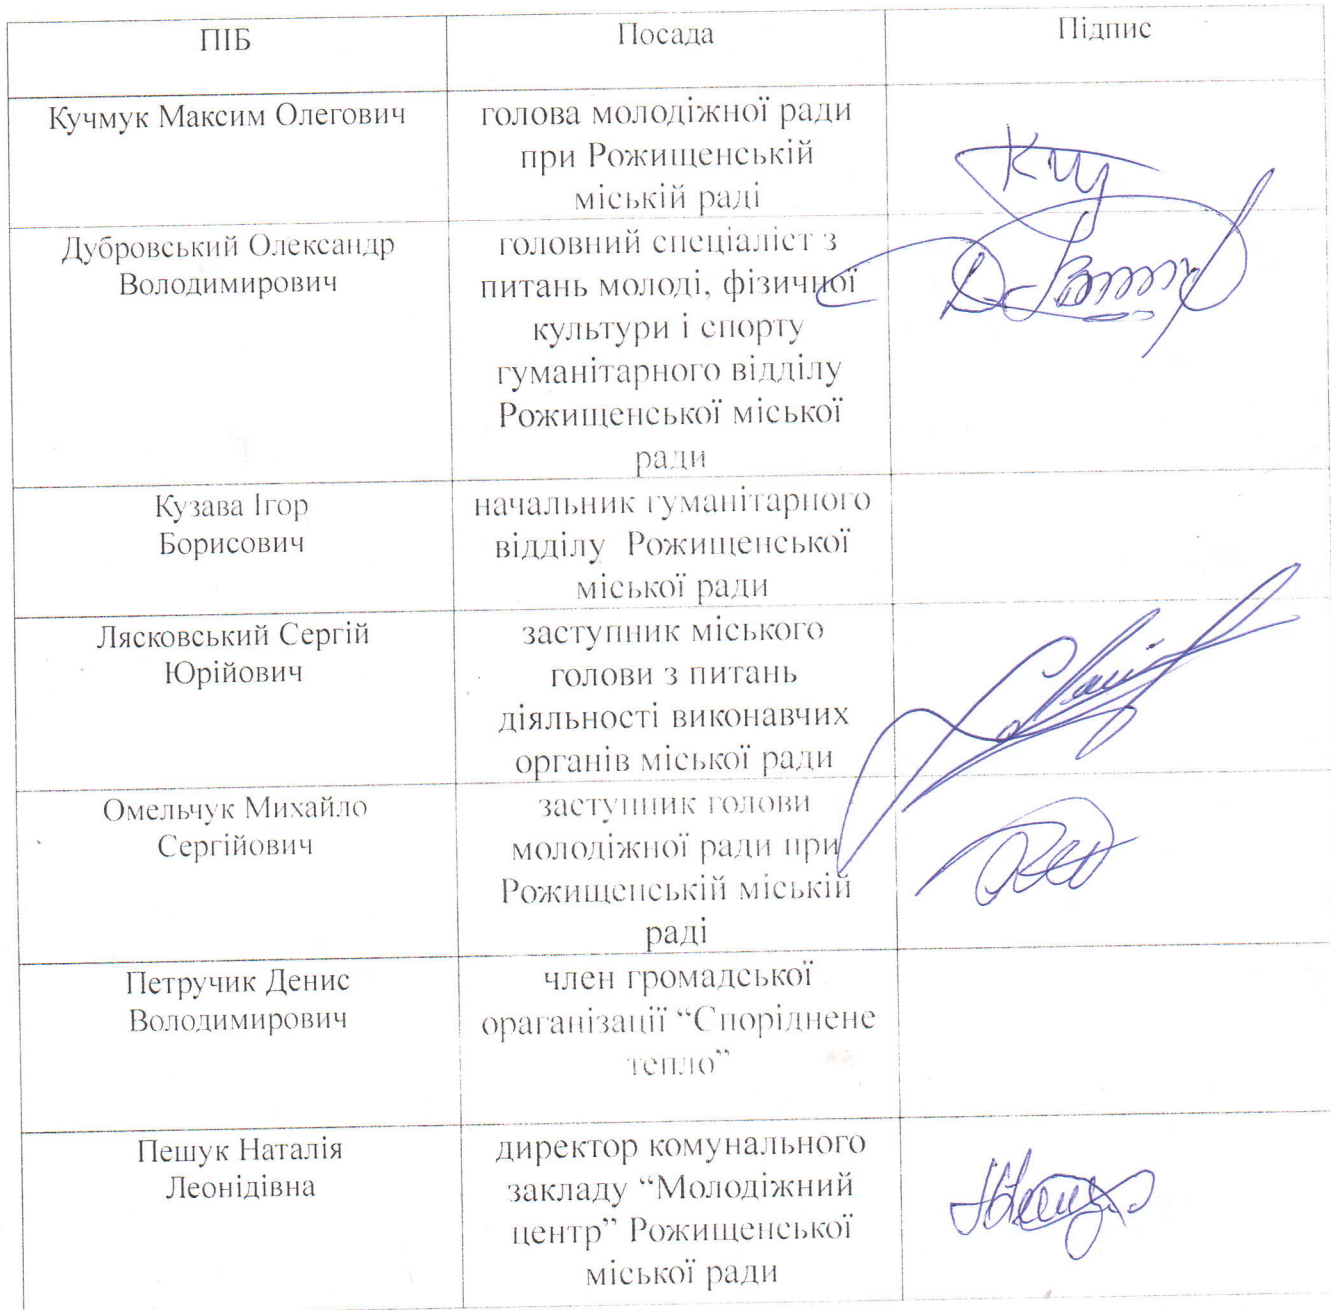 ПІБ
Посада
Підпис
Кучмук Максим Олегович
голова молодіжної ради
при Рожищенській
міській раді
Дубровський Олександр
Володимирович
головний спеціаліст з
питань молоді, фізичної
культури і спорту
гуманітарного відділу
Рожищенської міської
ради
Кузава Ігор
Борисович
начальник гуманітарного
відділу Рожищенської
міської ради
Лясковський Сергій
Юрійович
заступник міського
голови з питань
діяльності виконавчих
органів міської ради
Омельчук Михайло
Сергійович
заступник голови
молодіжної ради при
Рожищенській міській
раді
Петручик Денис
Володимирович
член громадської
ораганізації “Споріднене
тепло”
Пешук Наталія
Леонідівна
директор комунального
закладу “Молодіжний
центр” Рожищенської
міської ради